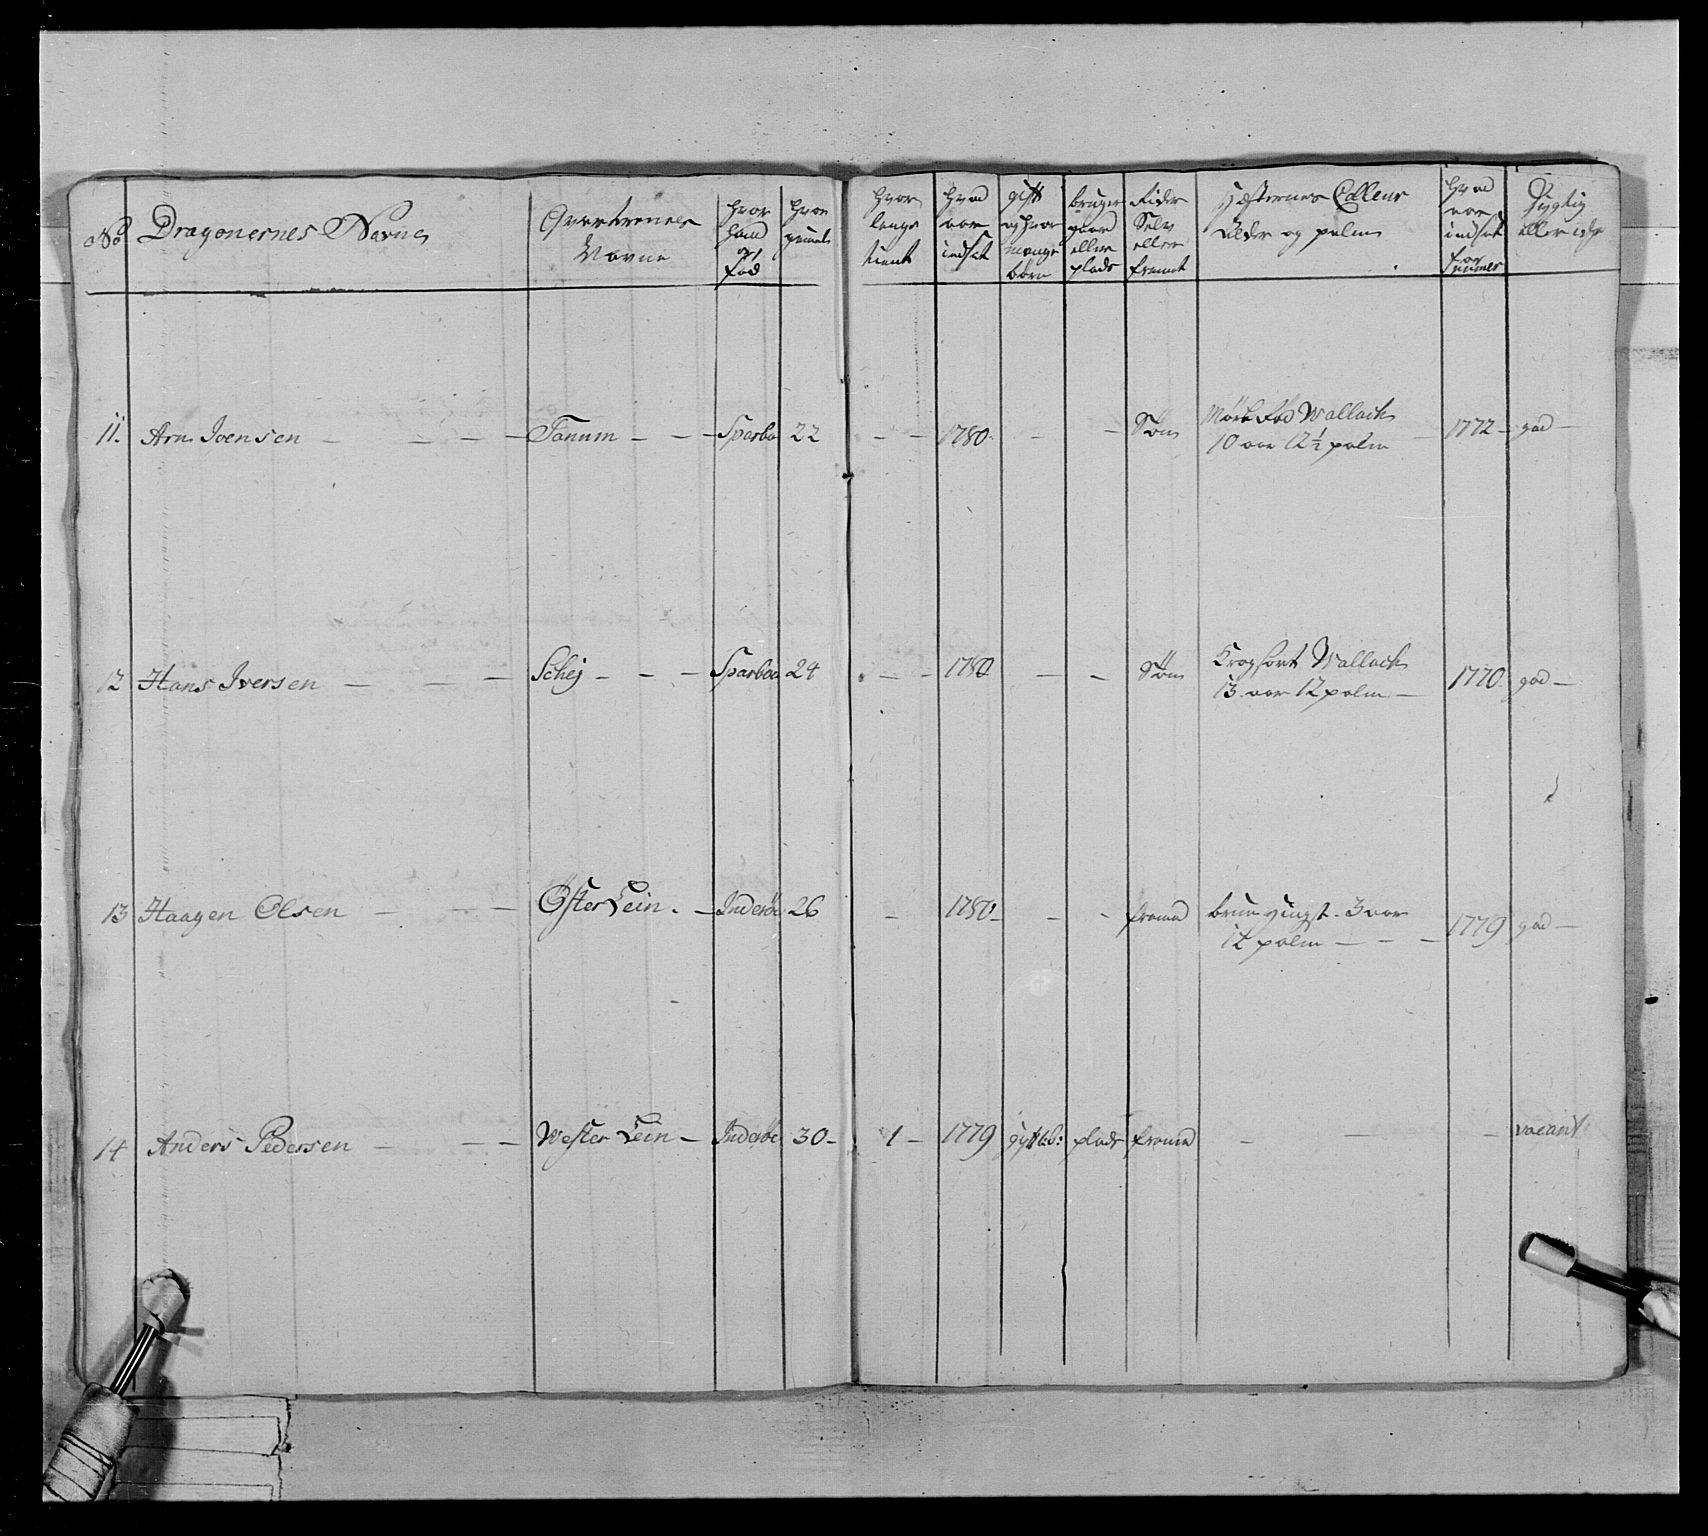 No Dragonernes Navne
Qvarterenes Navne
hvor hand er fød
hvor gamel
hvor lenge tient
hvad aar indsat
gift og hvor mange børn
bruger gaard eller plads
Rider Selv eller fremet
Hæsternes Colleur Alder og palm
hvad aar indsat for numer
dygtig eller ickе
11. Arn Joensen — — — — Tanum — — — Sparbo 22 — — 1780. — — Søn Mørk Rød Wallach 10 aar 12½ palm — 1772 — god —
12 Hans Iversen — — — — Schej — — — Sparboe 24 — — 1780 — — Søn Kragsort Wallach 13 aar 12 palm — 1770. god —
13 Haagen Olsen — — — Øster Lein. — Inderøe 26 — 1780 — — — fremd brun hingst. 3 aar 12 palm — — — 1779 god —
14 Anders Pedersen — — — Wester Lein — Inderøe 30 — 1 — 1779 plads fremd — — — vacant